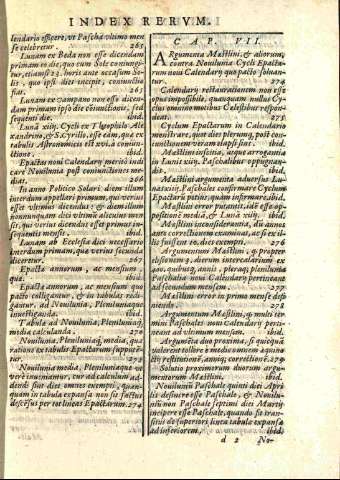 INDEX RERVM.
lendario efficere, vt Pascha vltimo men
se celebretur. 265
Lunam ex Beda non esse dicendam
primam eo die, quo cum Sole coniungi-
tur, etiamsi 23. horis ante occasum So-
lis, quo ipsi dies incipit, coniunctio
fiat. 265
Lunam ex Campano non esse dicen-
dam primam ipso die coniunctionis, sed
sequenti die. ibid.
Luna xiiij. Cycli ex Theophilo Ale
xandrino, & S. Cyrillo, esse eadem, quae ex
tabulis Astronomicis est xvi. à coniun-
ctione. ibid.
Epactas noui Calendarij meritò indi
care Nouilunia post coniunctiones me-
dias. 266
In anno Politico Solari: diem illum
interdum appellari primum, qui verius
esset vltimus dicendus: & diem illum
nonnunquam dici vltimum alicuius men-
sis, qui verius dicendus esset primus in-
terdum mensis. ibid.
Lunam ab Ecclesia dici necessario
interdum primam, quae verius secunda
diceretur. 267
Epacta annorum, ac mensium
quae. ibid.
Epacta annorum, ac mensium quo
pacto colligantur, & in tabulas redi-
gantur, ad Nouilunia, Pleniluniaque
inuestiganda. ibid.
Tabula ad Nouilunia, Pleniluniaq;
media calculanda. 270
Nouilunia, Pleniluniaq; media, qua
ratione ex tabulis Epactarum supputen-
tur. 273
Nouilunia media, Pleniluniaque vt
verè inueniantur, cur ad calculum ad-
dendi sint dies omnes expensi, quan-
quam in tabula expansa non sit factus
descensus per tot lineas Epactarum. 274
CAP. VII.
Argumenta Mæstlini, & aliorum,
contra Nouilunia Cycli Epactarum
noui Calendarij quo pacto soluan-
tur. 274
Calendarij restitutionem non esse
opus impossibile, quanquam nullus Cy-
clus omnino motibus Cælestibus respon-
deat. 275
Cyclum Epactarum in Calendario
monstrare, quot dies plerunq; post con-
iunctionem veram elapsi sint. ibid.
Mæstlini inscitia, atque arrogantia
in Lunis xiiij. Paschalibus oppugnan-
dis. ibid.
Mæstlini argumenta aduersus Lu-
nas xiiij. Paschales confirmare Cyclum
Epactarum potius, quàm infirmare. ibid.
Mæstlini error putantis, idē esse op-
positionē mediā, & Lunā xiiij. ibid.
Mæstlini inconsideratio, dū annos
ante correctionem examinat, ac si exci-
si fuissent 10. dies exempti. 276
Argumentum Mæstlini, q; propter
elisionem 3. dierum intercalarium ex
400. quibusq; annis, pleraq; plenilunia
Paschalia noui Calendarij pertineant
ad secundum mensem. 277
Mæstlini error in primo mense defi-
niendo. 278
Argumentum Mæstlini, q; multi ter-
mini Paschales noui Calendarij perti-
neant ad vltimum mensem. ibid.
Argumēta duo proxima, si quicquā
valerent tollere è medio omnem æquino-
ctij restitutionē, annoq; correctionē. 279
Solutio proximorum duorum argu-
mentorum Mæstlini. ibid.
Nouilunium Paschale quinti diei Apri
lis desinere esse Paschale, & Nouilu-
nium non Paschale septimi diei Martij
incipere esse Paschale, quando sit tran-
situs de superiori linea tabulæ expansæ
ad inferiorem. ibid.
d 2 No-